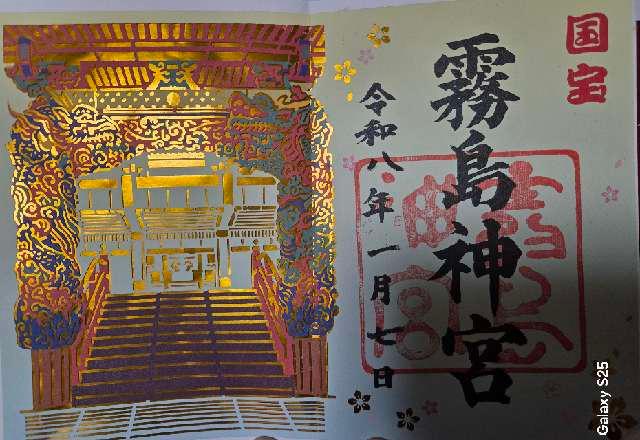 国宝
霧島神宮
令和八年一月七日
Galaxy S25